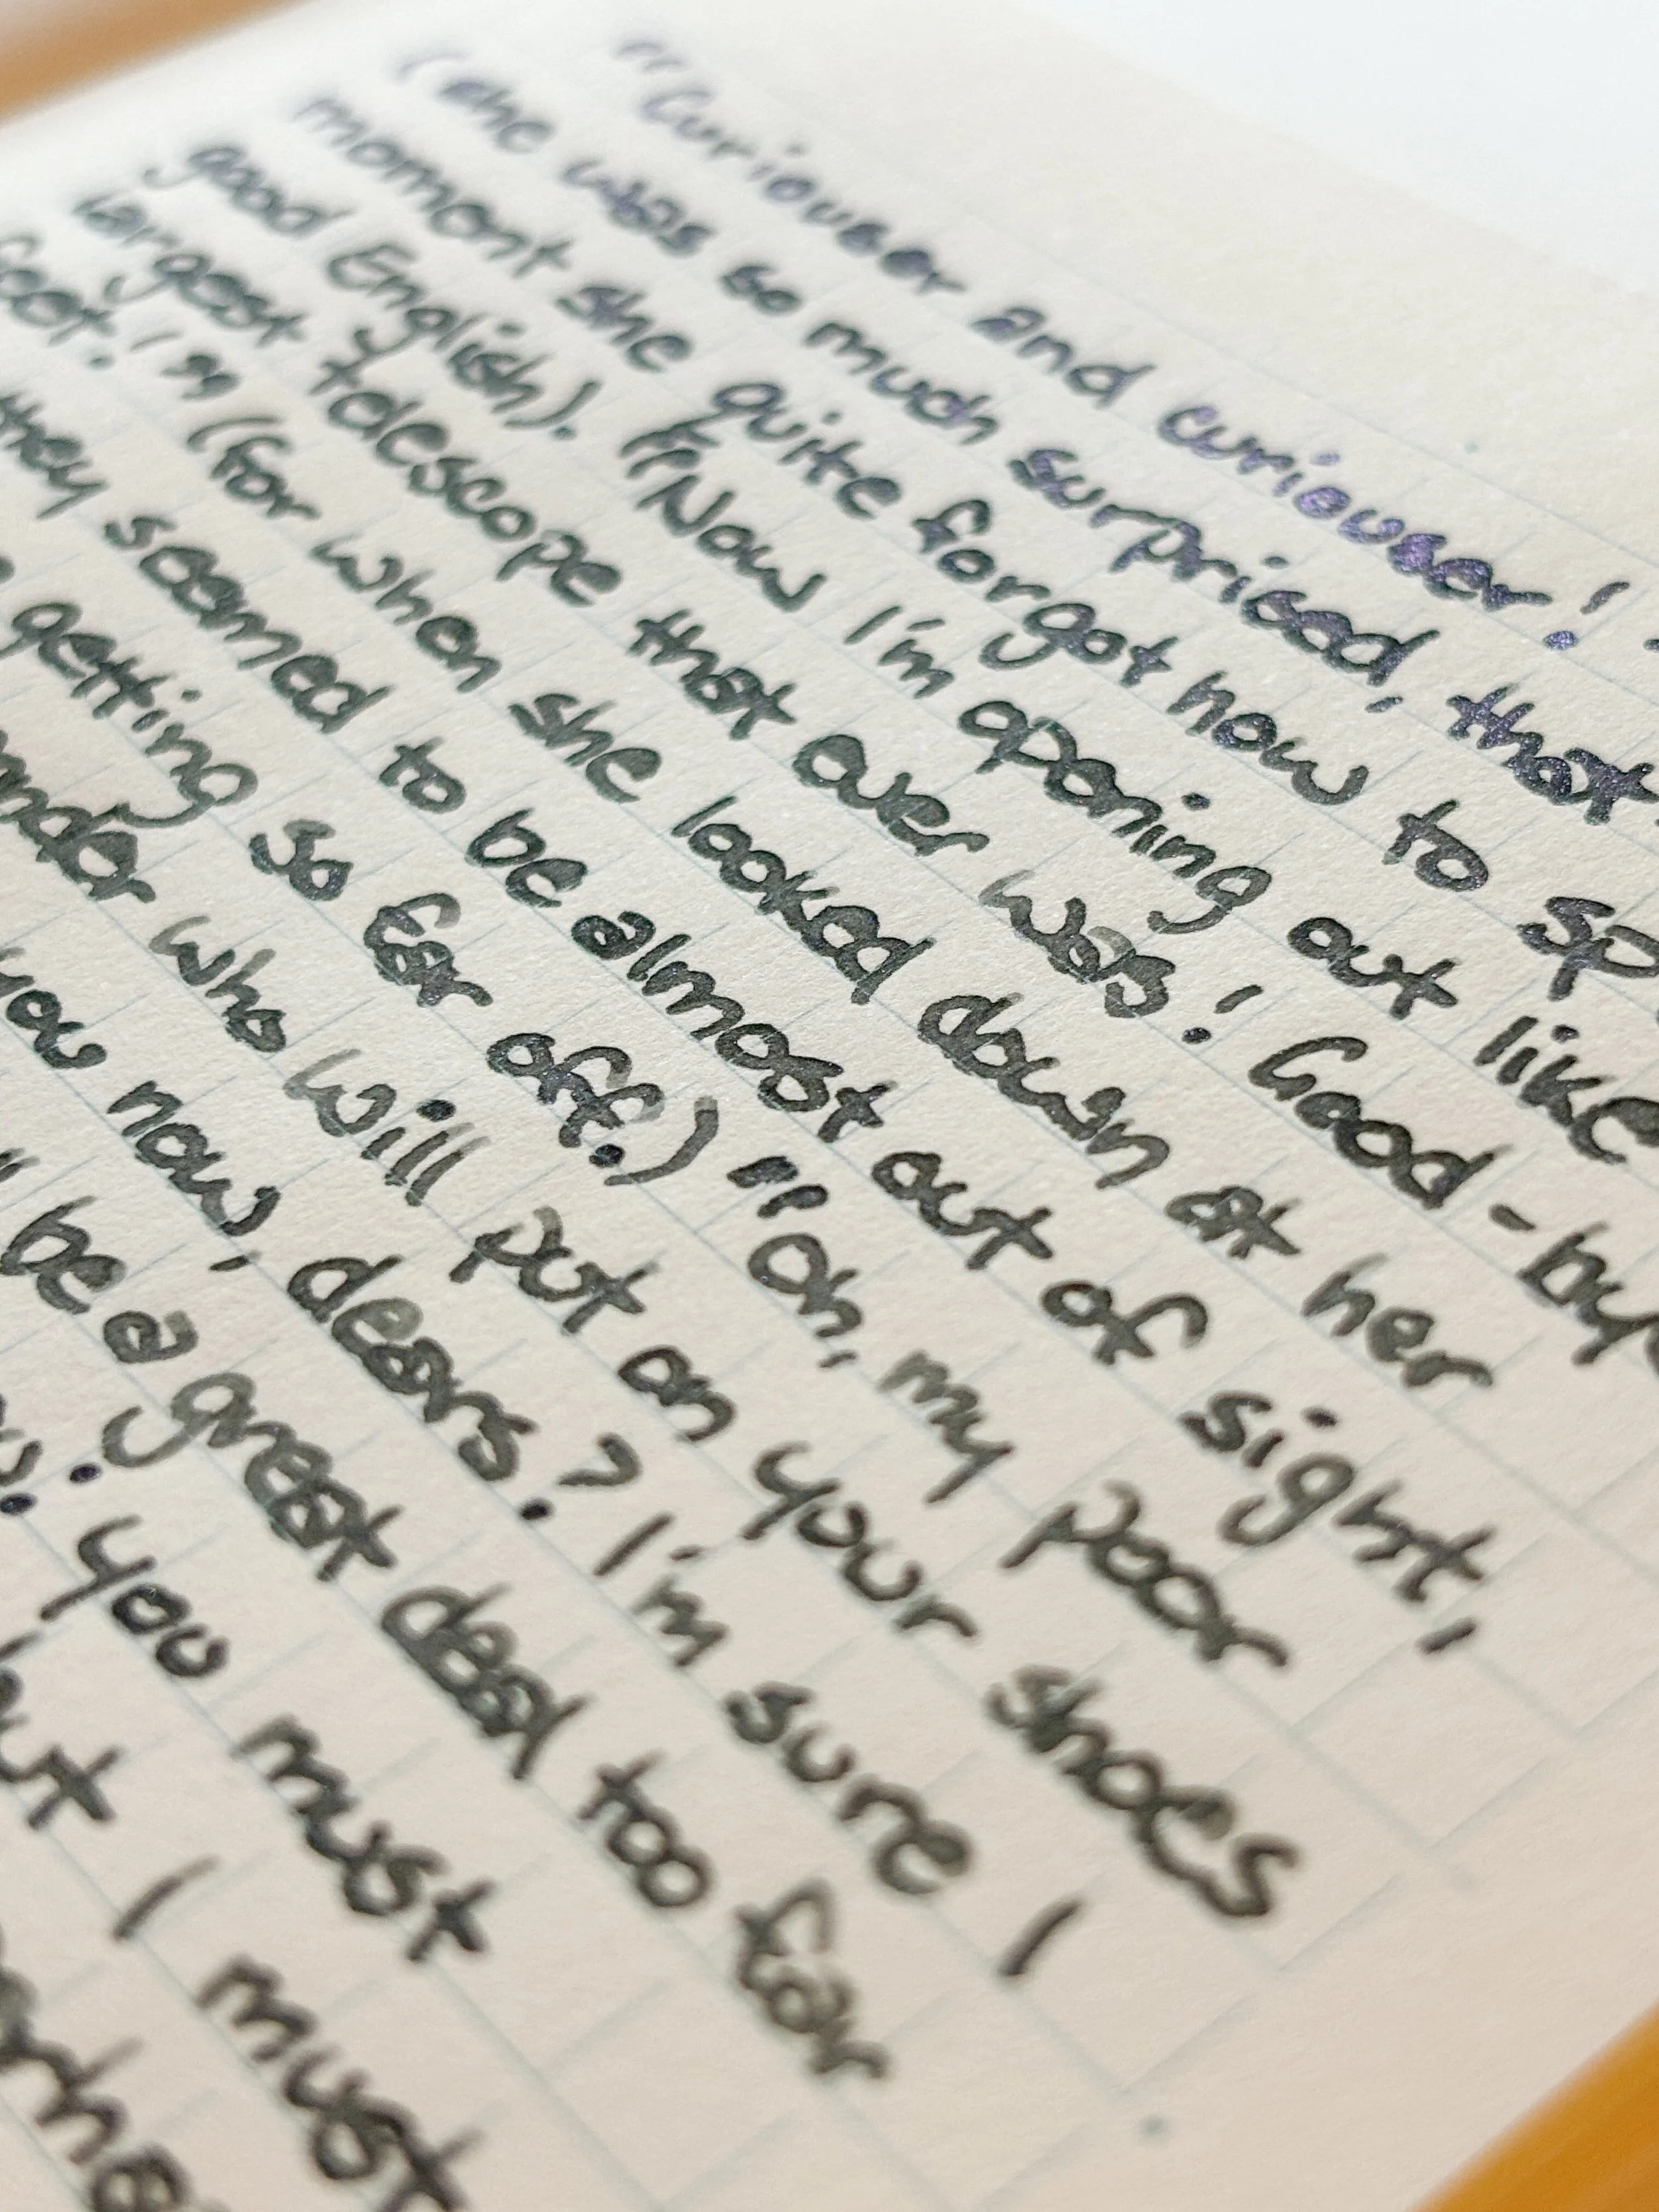 "Curiouser and curiouser!
(she was so much surprised, that
moment she quite forgot how to sp
good English). "Now I'm opening out like
largest telescope that ever was! Good-by
feet!" (for when she looked down at her
they seemed to be almost out of sight,
getting so far off.) "Oh, my poor
who will put on your shoes
you now, dears? I'm sure I
be a great deal too far
you must
I must